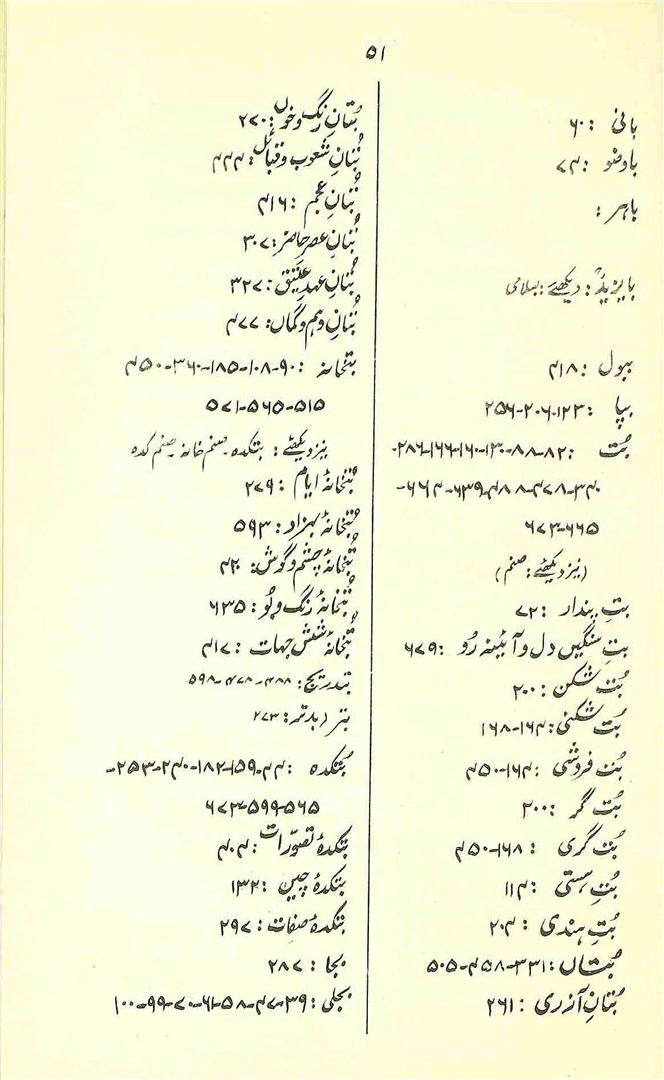 ۵۱
بانی : ۶۰
باوضو : ۷۴
باہر :
بایزیدؒ : دیکھئے : بسطامی
ببول : ۴۱۸
بپا : ۱۲۳-۲۰۶-۲۵۶
بُت : ۸۲-۸۸-۱۳۰-۱۶۰-۱۶۶-۲۸۶-
۶۶۵-۶۷۳
(نیز دیکھئے : صنم)
بتِ پندار : ۷۲
بتِ سنگیں دل و آئینہ رُو : ۶۷۹
بُت شکن : ۲۰۰
بُت شکنی : ۱۶۴-۱۶۸
بُت فروشی : ۱۶۴-۴۵۰
بُت گر : ۲۰۰
بُت گری : ۱۶۸-۴۵۰
بُتِ ہستی : ۱۱۴
بُتِ ہندی : ۲۰۴
بُتاں : ۳۳۱-۴۵۸-۵۰۵
بُتانِ آزری : ۲۶۱
بُتانِ رنگ و خوں : ۲۷۰
بُتانِ شعوب و قبائل : ۴۴۴
بُتانِ عجم : ۴۱۶
بُتانِ عصرِ حاضر : ۳۰۷
بُتانِ عہدِ عتیق : ۳۲۷
بُتانِ وہم و گماں : ۴۷۷
بتخانہ : ۹۰-۱۰۸-۱۸۵-۳۶۰-۴۵۰
۵۱۵-۵۶۵-۵۷۱
نیز دیکھئے : بتکدہ - صنم خانہ - صنم کدہ
بُتخانۂ ایام : ۲۷۹
بُتخانۂ بہزاد : ۵۹۳
بُتخانۂ چشم و گوش : ۴۲۰
بُتخانۂ رنگ و بُو : ۶۳۵
بُتخانۂ شش جہات : ۴۱۷
بتدریج : ۴۸۸-۴۷۸-۵۹۸
بتر (بدتر) : ۲۷۳
بُتکدہ : ۴۴-۱۵۹-۱۸۲-۲۴۰-۲۵۳-
۵۶۵-۵۹۹-۶۷۴
بتکدۂ تصوّرات : ۴۰۴
بتکدۂ چین : ۱۳۲
بتکدۂ صفات : ۲۹۷
بجا : ۲۸۷
بجلی : ۳۹-۴۷-۵۸-۶۱-۷۰-۹۹-۱۰۰